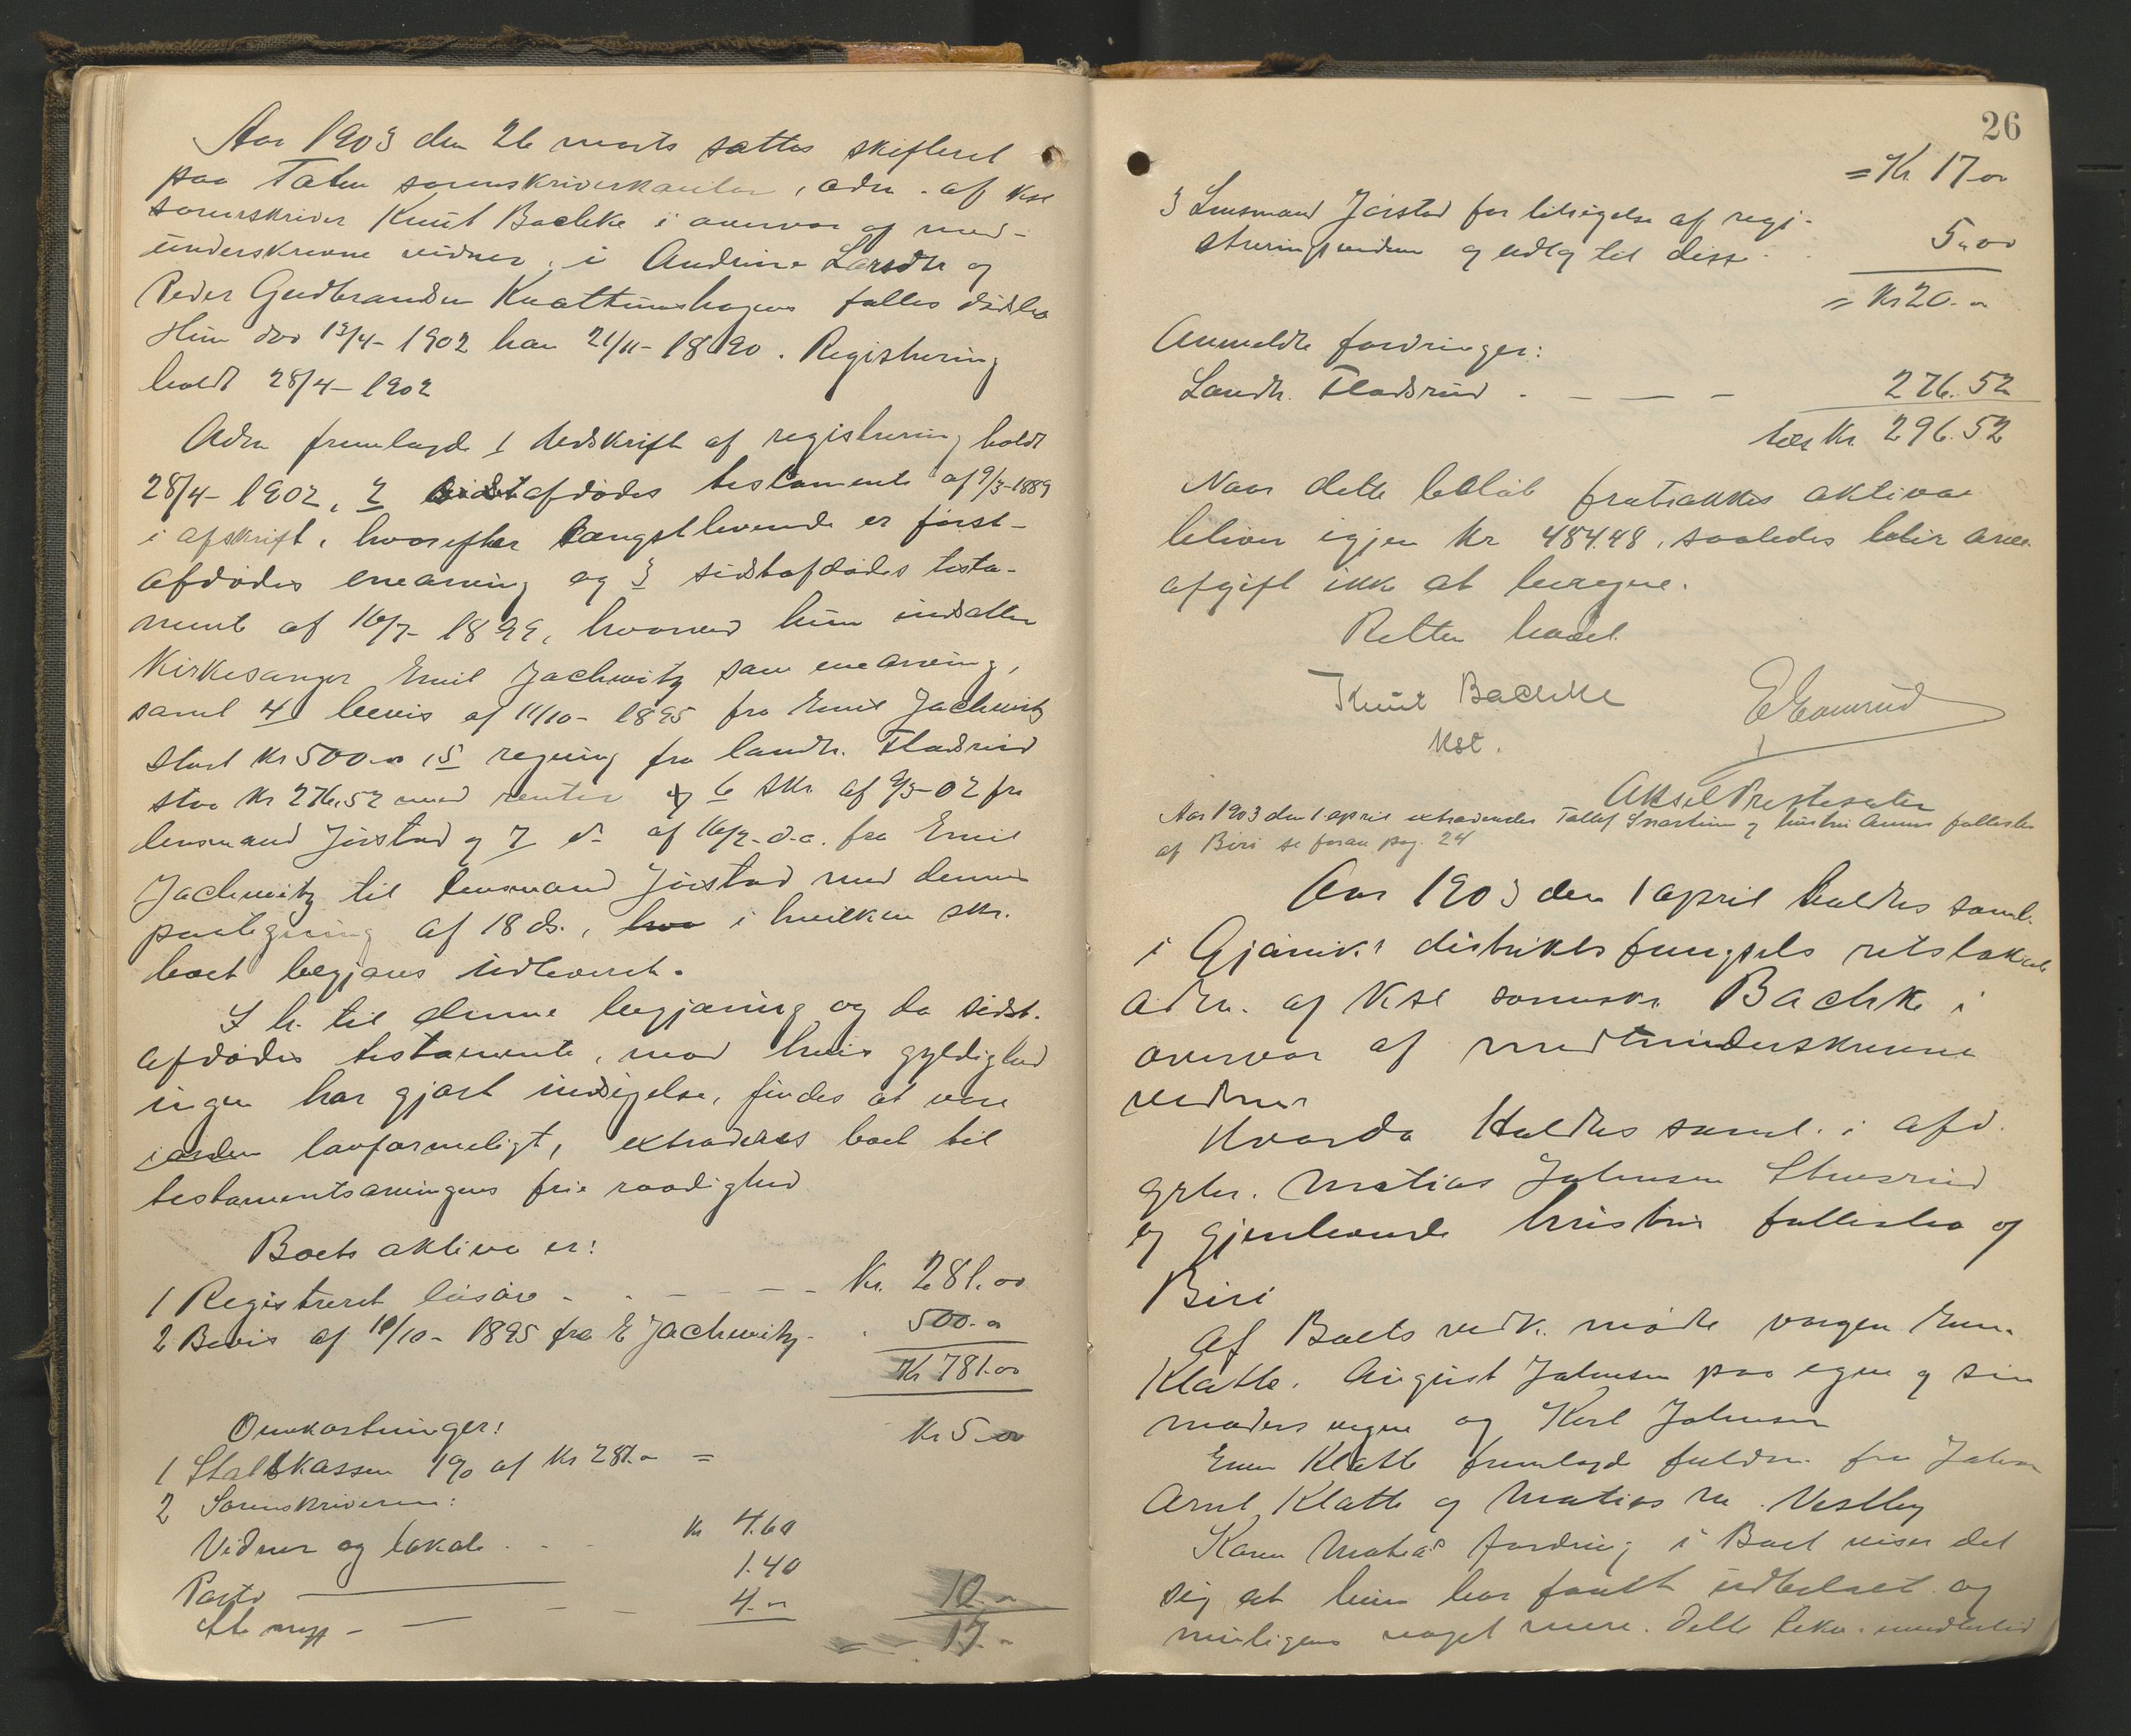 Aar 1903 den 26 marts sattes skifteret
paa Toten sorenskriverkontor, adm. af kst
sorenskriver Knut Bachke i overvær af med-
underskrevne vidner, i Andrine Larsdtr og
Peder Gudbrandsen Knattumshagens fælles dødsbo
Hun død 13/4-1902 han 21/11-1890. Registrering
holdt 28/4-1902
Adm fremlagde 1 Udskrift af registrering holdt
28/4-1902, 2 sidstafdødes testamente af 9/3-1889
i afskrift, hvorefter længstlevende er først-
afdødes enearving og 3 sidstafdødes testa-
ment af 16/7-1899, hvorved hun indsatte
Kirkesanger Emil Jachwitz som enearving,
samt 4 bevis af 11/10-1895 fra Emil Jachwitz
stort Kr 500.00, 5 regning fra landh. Fladsrud
stor Kr 276.52 med renter og 6 skr af 9/5-02 fra
lensmand Jørstad og 7 do af 16/2 d.a. fra Emil
Jachwitz til lensmand Jørstad med dennes
paategning af 18 ds., hvo i hvilken skr.
boet begjæres udleveret.
I h. til denne begjæring og da sidst-
afdødes testamente, mod hvis gyldighed
ingen har gjort indsigelse, findes at være
i orden lovformeligt, extraderes boet til
testamentsarvingens frie raadighed
Boets aktiva er:
1 Registreret løsøre - - - - - - Kr. 281.00
2 Bevis af 10/10-1895 fra E Jachwitz - . 500.00
Kr 781.00
Omkostninger:
1 Statskassen 1% af Kr 281.00 = Kr 5.00
2 Sorenskriveren:
Vidner og lokale . - - Kr 4.60
Porto 1.40
- - - 4.00 10.00
= - 17.00
26
= Kr 17.00
3 Lensmand Jørstad for tilsigelse af regi-
streringsvidner og udlæg til disse . . 5.00
= Kr 20.00
Anmeldte fordringer:
Landh. Fladsrud . - - - 276.52
tils Kr 296.52
Naar dette beløb fratrækkes aktiva
bliver igjen Kr 484.48, saaledes bliver arve-
afgift ikke at beregne.
Retten hævet
Knut Bachke
kst.
Aksel Prestesæter
Aar 1903 den 1 april extraderedes Tollef Snartum og hustru Annes fællesbo
af Biri se foran pag. 24
Aar 1903 den 1 april holdtes saml.
i Gjøvik's distriktsfængsels retslokale
adm. af Kst sorenskr Bachke i
overvær af medunderskrevne
vidner
Hvorda Holdtes saml. i afd.
grbr. Matias Johnsen Stuesrud
og gjenlevende hustrus fællesbo af
Biri
Af Boets vedk. mødte vergen Even
Klatte. August Johnsen paa egne og sin
moders vegne og Karl Johnsen
Even Klatte fremlagde fuldm. fra Johan
Arnt Klatte og Matias M. Vestby
Karen Matias fordring i Boet viser det
sig at hun har faaet udbetalt og
muligens noget mere. Dette imidlertid